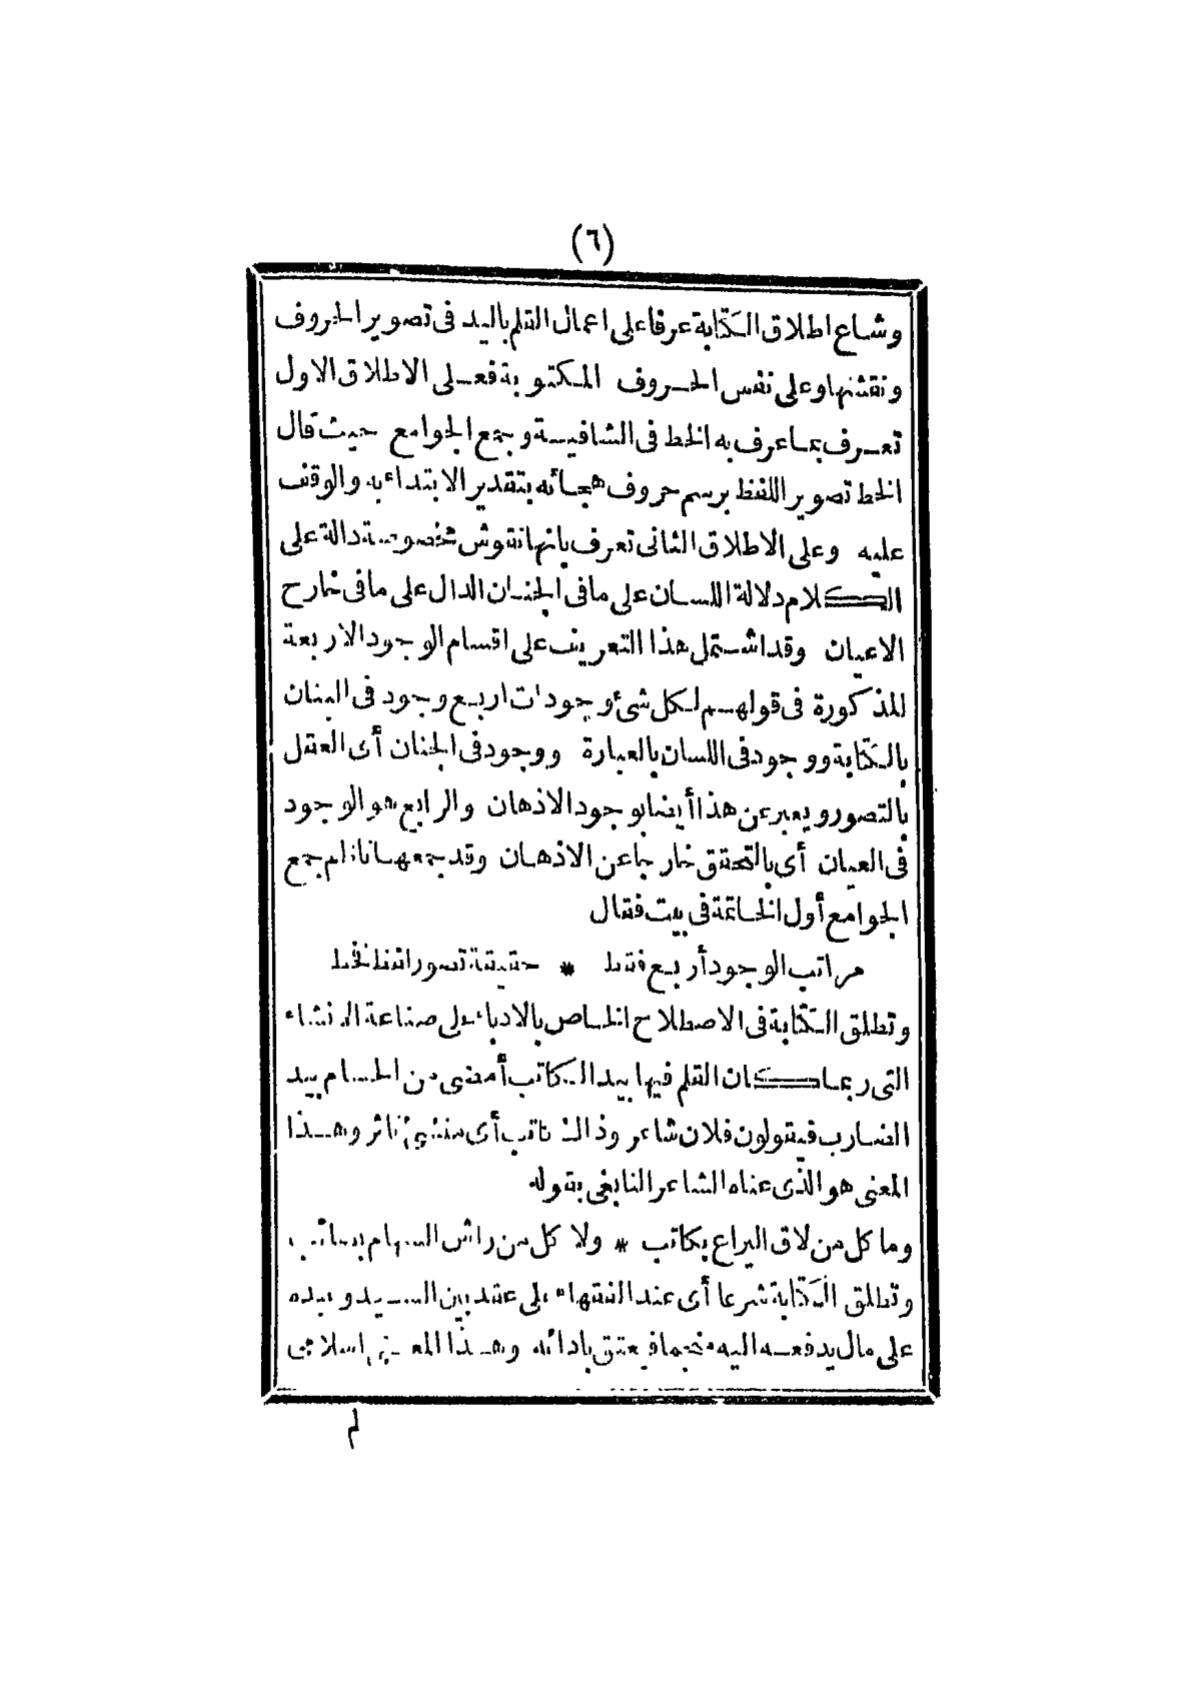 (٦)
وشاع اطلاق الكتابة عرفا على اعمال القلم باليد فى تصوير الحروف
ونقشها وعلى نفس الحروف المكتوبة فعلى الاطلاق الاول
تعرف بما عرف به الخط فى الشافية وجمع الجوامع حيث قال
الخط تصوير اللفظ برسم حروف هجائه بتقدير الابتداء به والوقف
عليه وعلى الاطلاق الثانى تعرف بانها نقوش مخصوصة دالة على
الكلام دلالة اللسان على ما فى الجنان الدال على ما فى خارج
الاعيان وقد اشتمل هذا التعريف على اقسام الوجود الاربعة
المذكورة فى قولهم لكل شئ وجودات اربع وجود فى البنان
بالكتابة ووجود فى اللسان بالعبارة ووجود فى الجنان أى العقل
بالتصور ويعبر عن هذا أيضا بوجود الاذهان والرابع هو الوجود
فى العيان أى بالتحقق خارجا عن الاذهان وقد جمعها ناظم جمع
الجوامع أول الخاتمة فى بيت فقال
مراتب الوجود أربع فقط * حقيقة تصور لفظ فخط
وتطلق الكتابة فى الاصطلاح الخاص بالادباء على صناعة الانشاء
التى ربما كان القلم فيها بيد الكاتب أمضى من الحسام بيد
الضارب فيقولون فلان شاعر وذاك كاتب أى منشئ ناثر وهذا
المعنى هو الذى عناه الشاعر النابغى بقوله
وما كل من لاق اليراع بكاتب * ولا كل من راش السهام بصائب
وتطلق الكتابة شرعا أى عند الفقهاء على عقد بين السيد وعبده
على مال يدفعه اليه منجما فيعتق بادائه وهذا المعنى اسلامى
لم